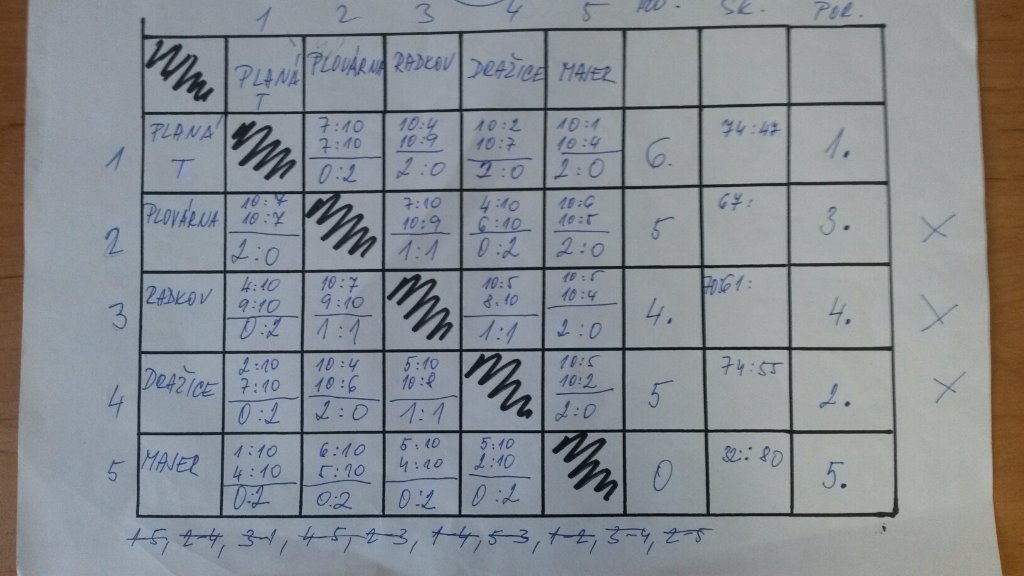 1 2 3 4 5 POR.
PLANÁ T PLOVÁRNA RADKOV DRAŽICE MAJER
1 PLANÁ T 7:10 7:10 0:2 10:4 10:9 2:0 10:2 10:7 2:0 10:1 10:4 2:0 6. 74:47 1.
2 PLOVÁRNA 10:7 10:7 2:0 7:10 10:9 1:1 4:10 6:10 0:2 10:6 10:5 2:0 5 67: 3. X
3 RADKOV 4:10 9:10 0:2 10:7 9:10 1:1 10:5 8:10 1:1 10:5 10:4 2:0 4. 61: 4. X
4 DRAŽICE 2:10 7:10 0:2 10:4 10:6 2:0 5:10 10:8 1:1 10:5 10:2 2:0 5 74:55 2. X
5 MAJER 1:10 4:10 0:2 6:10 5:10 0:2 5:10 4:10 0:2 5:10 2:10 0:2 0 32::80 5.
1-5, 2-4, 3-1, 4-5, 2-3, 1-4, 5-3, 1-2, 3-4, 2-5